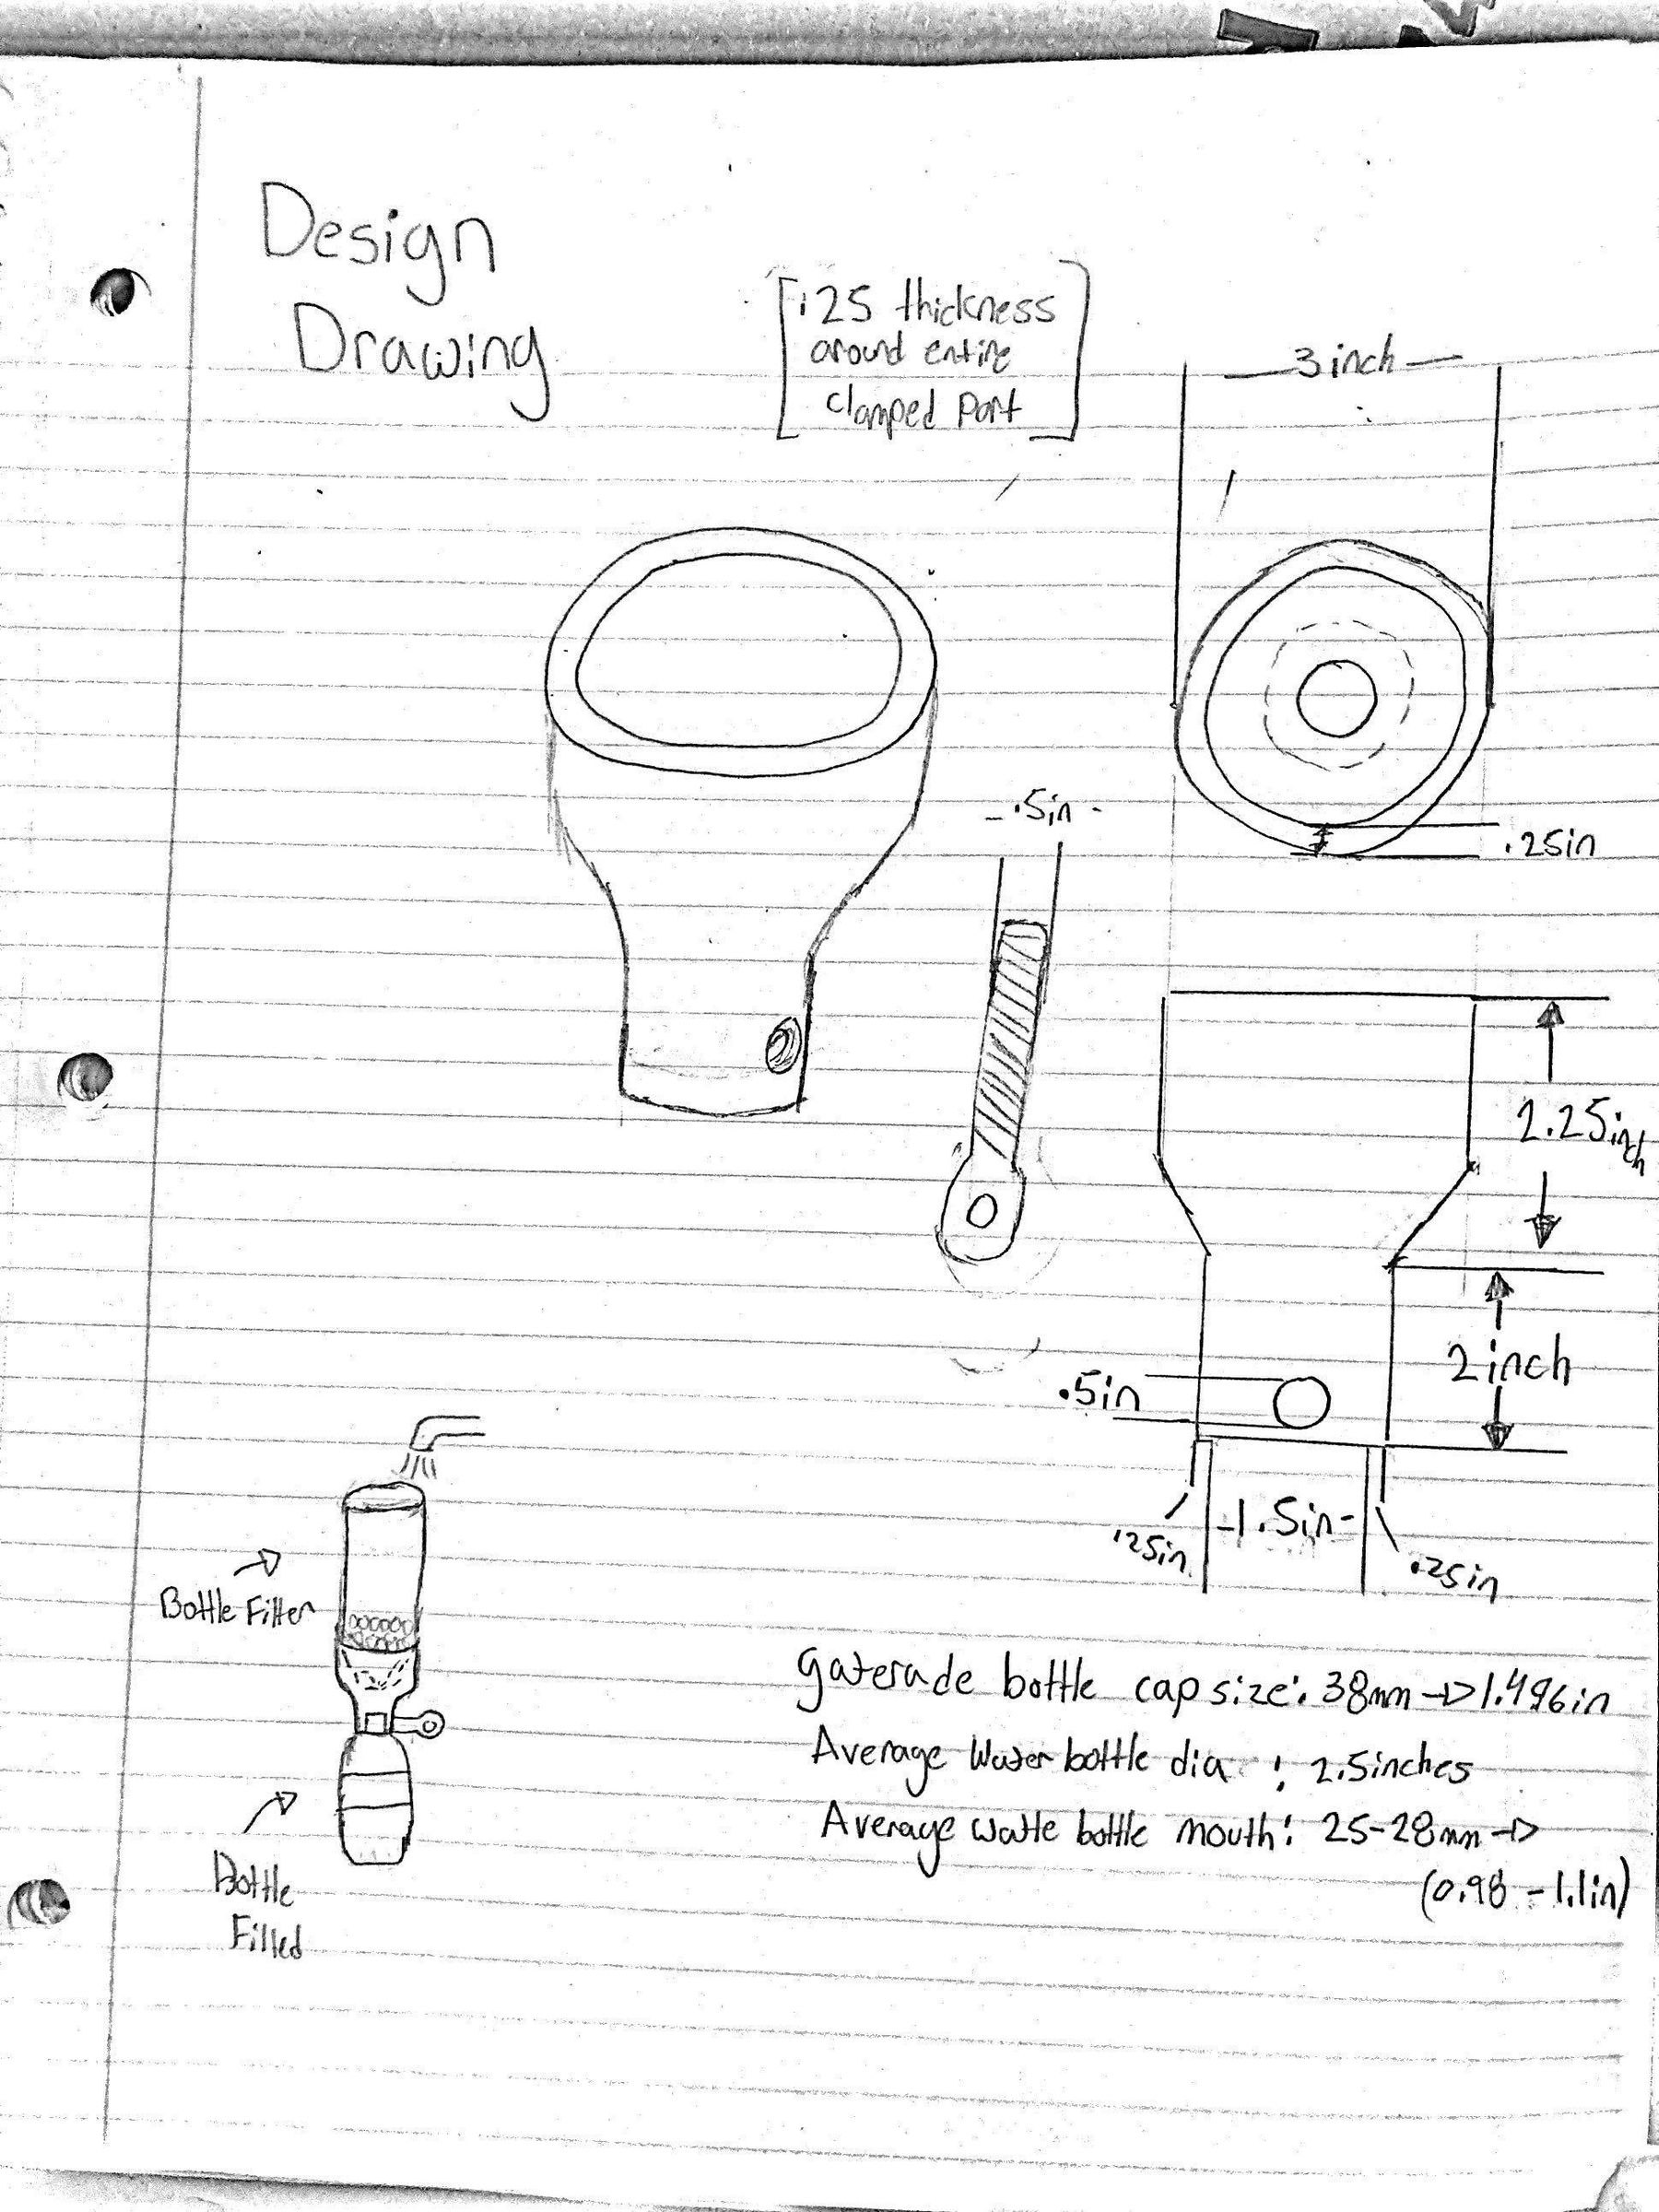 Design
Drawing
[.25 thickness
around entire
clamped part]
3 inch
.25in
.5in
2.25inch
2 inch
.5in
.25in
1.5in
.25in
Bottle Filter
Bottle
Filled
Gaterade bottle cap size: 38mm → 1.496in
Average Water bottle dia : 2.5inches
Average Watte bottle mouth: 25-28mm →
(0.98 - 1.1in)